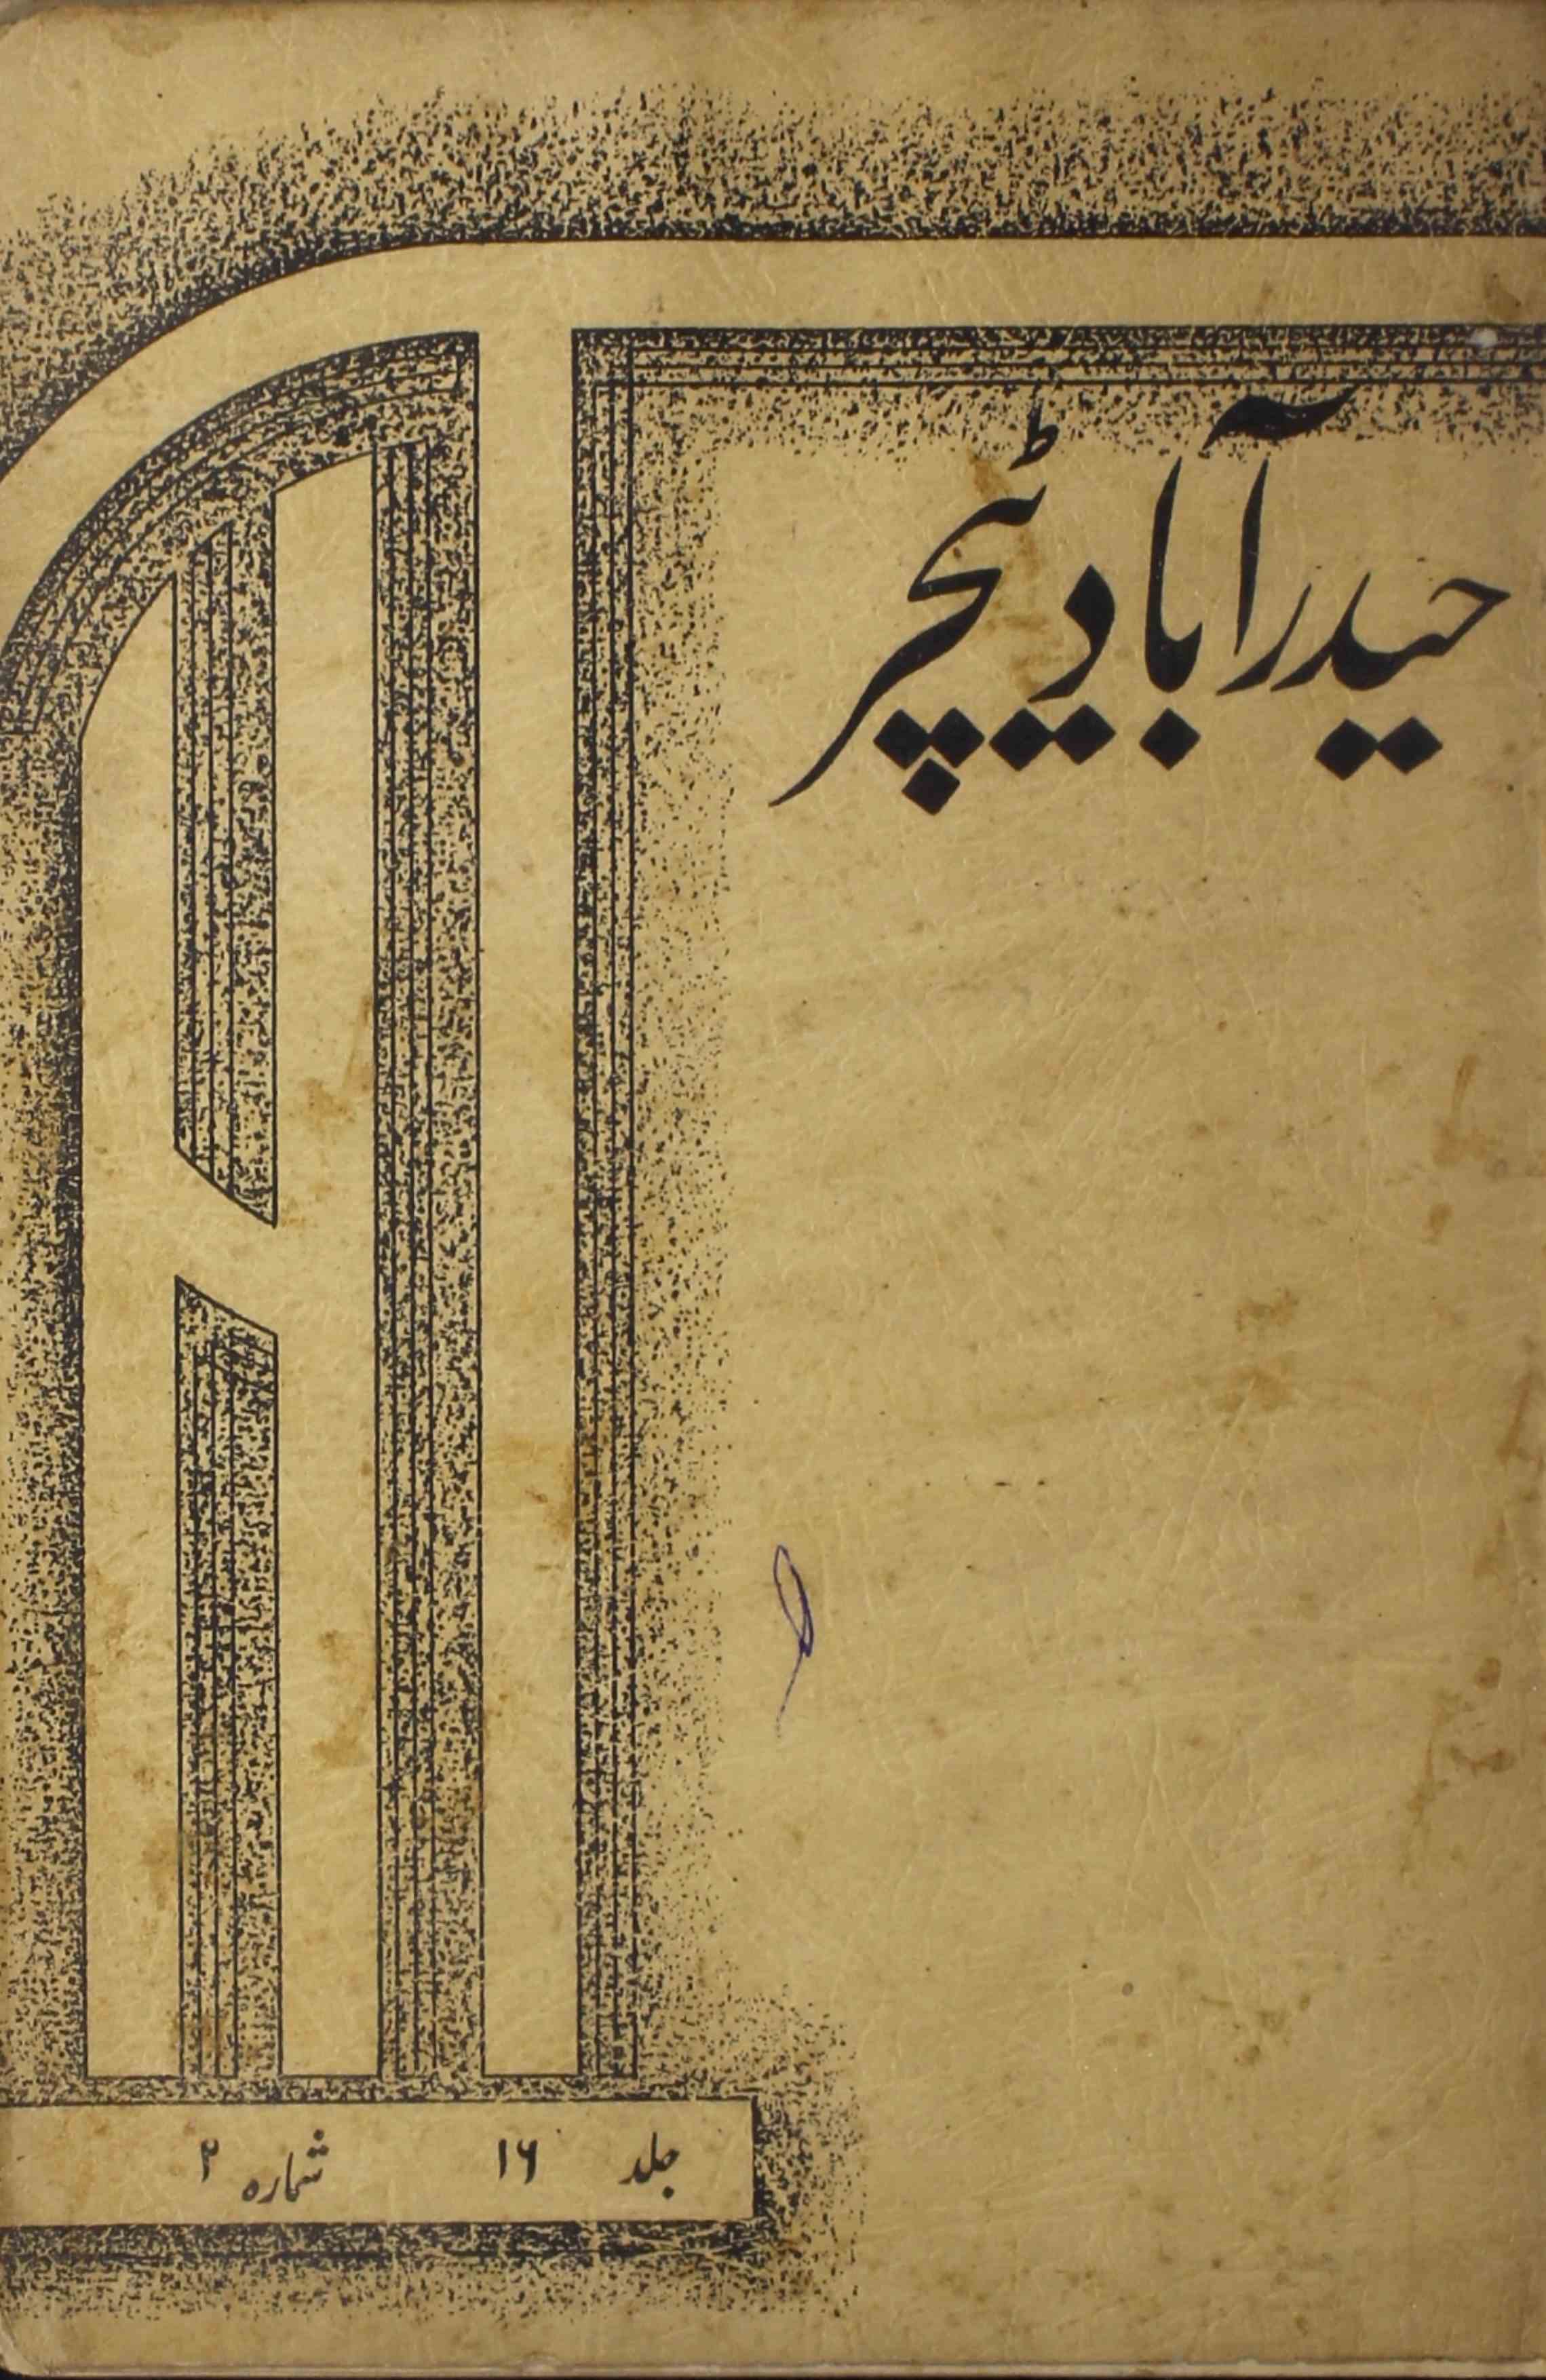 حیدرآباد ٹیچر
جلد ۱۶ شمارہ ۲